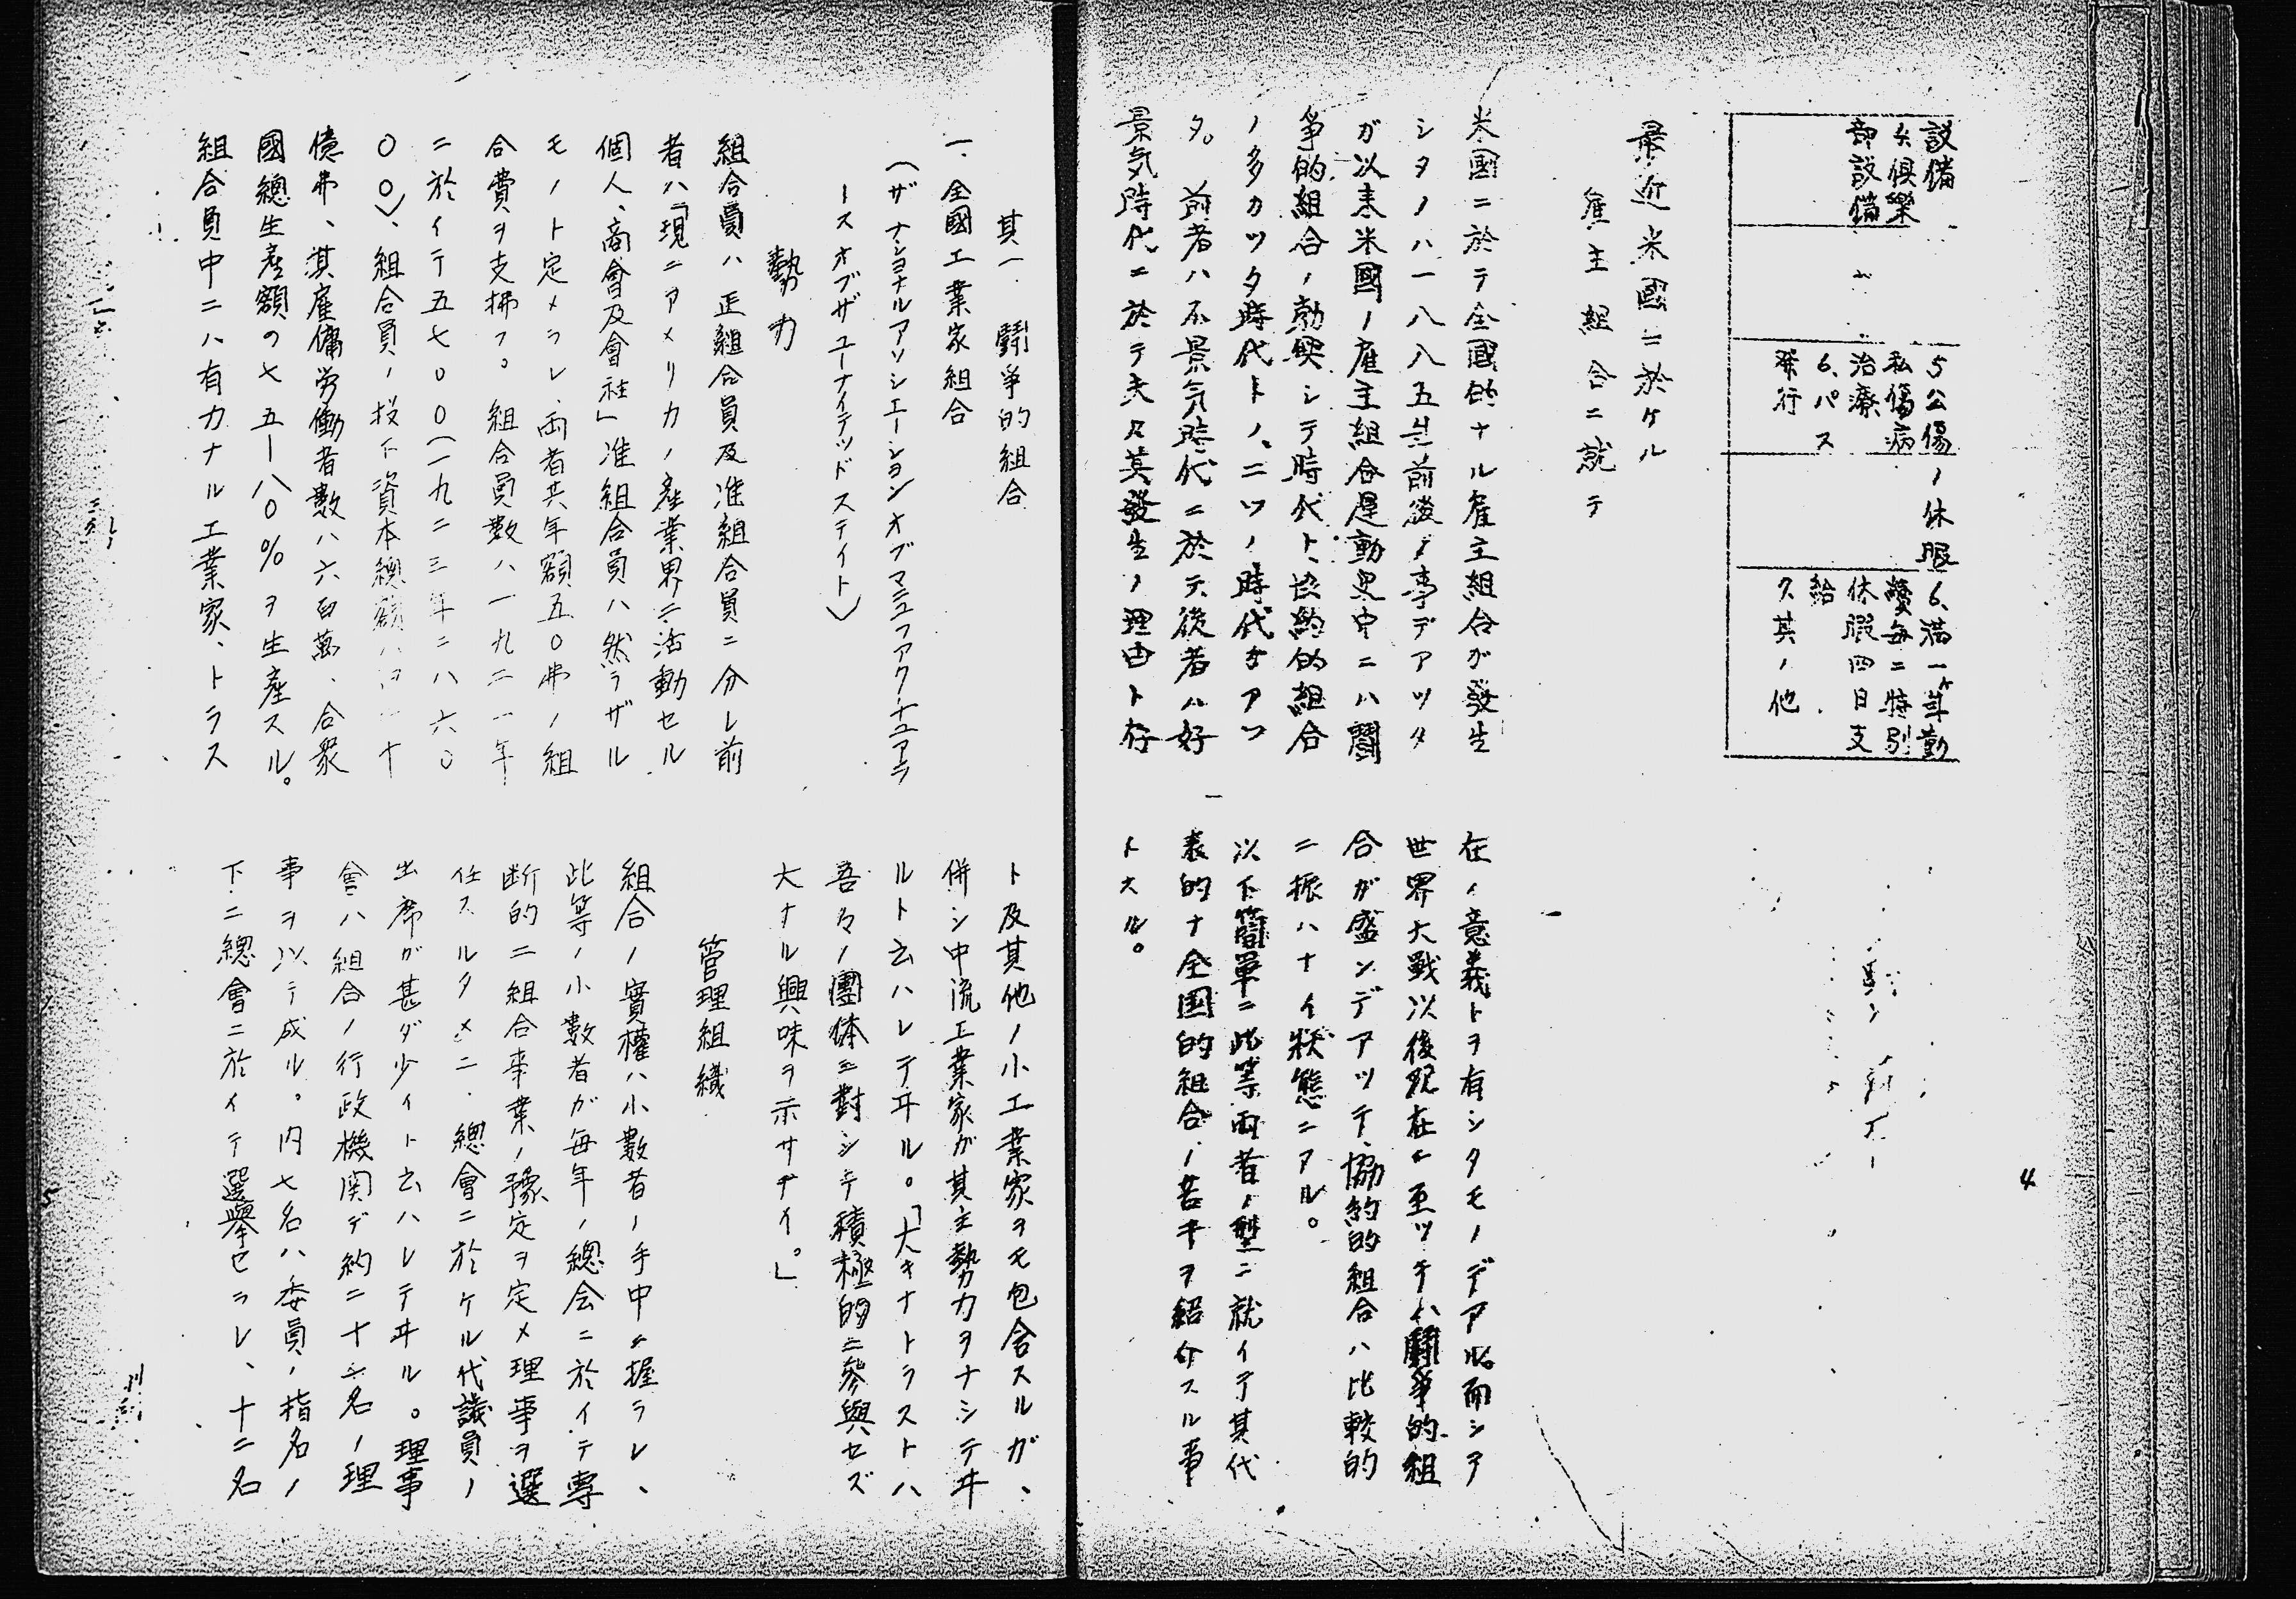 設備
4、倶樂
部設備
5公傷ノ休暇
私傷病
治療
6、パス
発行
6、満一ケ年勤
續毎ニ特別
休暇四日支
給
7、其ノ他
最近米國ニ於ケル
雇主組合ニ就テ
米國ニ於テ全國的ナル雇主組合が發生
シタノハ一八八五年前後ノ事デアツタ
が以来米國ノ雇主組合運動史中ニハ鬪
争的組合ノ勃興シテ時代ト、協約的組合
ノ多カツタ時代トノ、二ツノ時代がアツ
タ。前者ハ不景気時代ニ於テ後者ハ好
景気時代ニ於テ夫々其發生ノ理由ト存
在ノ意義トヲ有シタモノデアル。而シテ
世界大戰以後現在ニ至ツテハ鬪争的組
合が盛ンデアツテ、協約的組合ハ比較的
ニ振ハナイ狀態ニアル。
以下簡單ニ此等両者ノ型ニ就イテ其代
表的ナ全国的組合ノ若干ヲ紹介スル事
トスル。
4
其一 鬪争的組合
一、全國工業家組合
(ザナショナルアソシエーションオブマニュファクチュアラ
ースオブザユーナイテッドステイト)
勢力
組合員ハ正組合員及准組合員ニ分レ前
者ハ「現ニアメリカノ産業界ニ活動セル
個人、商會及會社」准組合員ハ然ラザル
モノト定メラレ、両者共年額五〇弗ノ組
合費ヲ支拂フ。組合員数ハ一九二一年
ニ於イテ五七〇〇(一九二三年ニハ六〇
〇〇)、組合員ノ投下資本總額ハ四十
億弗、其雇傭労働者数ハ六百萬、合衆
國總生産額の七五―八〇%ヲ生産スル。
組合員中ニハ有力ナル工業家、トラス
ト及其他ノ小工業家ヲモ包含スルガ、
併シ中流工業家が其主勢力ヲナシテヰ
ルト云ハレテヰル。「大キナトラストハ
吾々ノ團体ニ對シテ積極的ニ參與セズ
大ナル興味ヲ示サナイ。」
管理組織
組合ノ實權ハ小数者ノ手中ニ握ラレ、
此等ノ小数者が毎年ノ總会ニ於イテ專
断的ニ組合事業ノ豫定ヲ定メ理事ヲ選
任スルタメニ、總會ニ於ケル代議員ノ
出席が甚ダ少イト云ハレテヰル。理事
會ハ組合ノ行政機関デ約二十二名ノ理
事ヲ以テ成ル。内七名ハ委員ノ指名ノ
下ニ總會ニ於イテ選擧セラレ、十二名
5